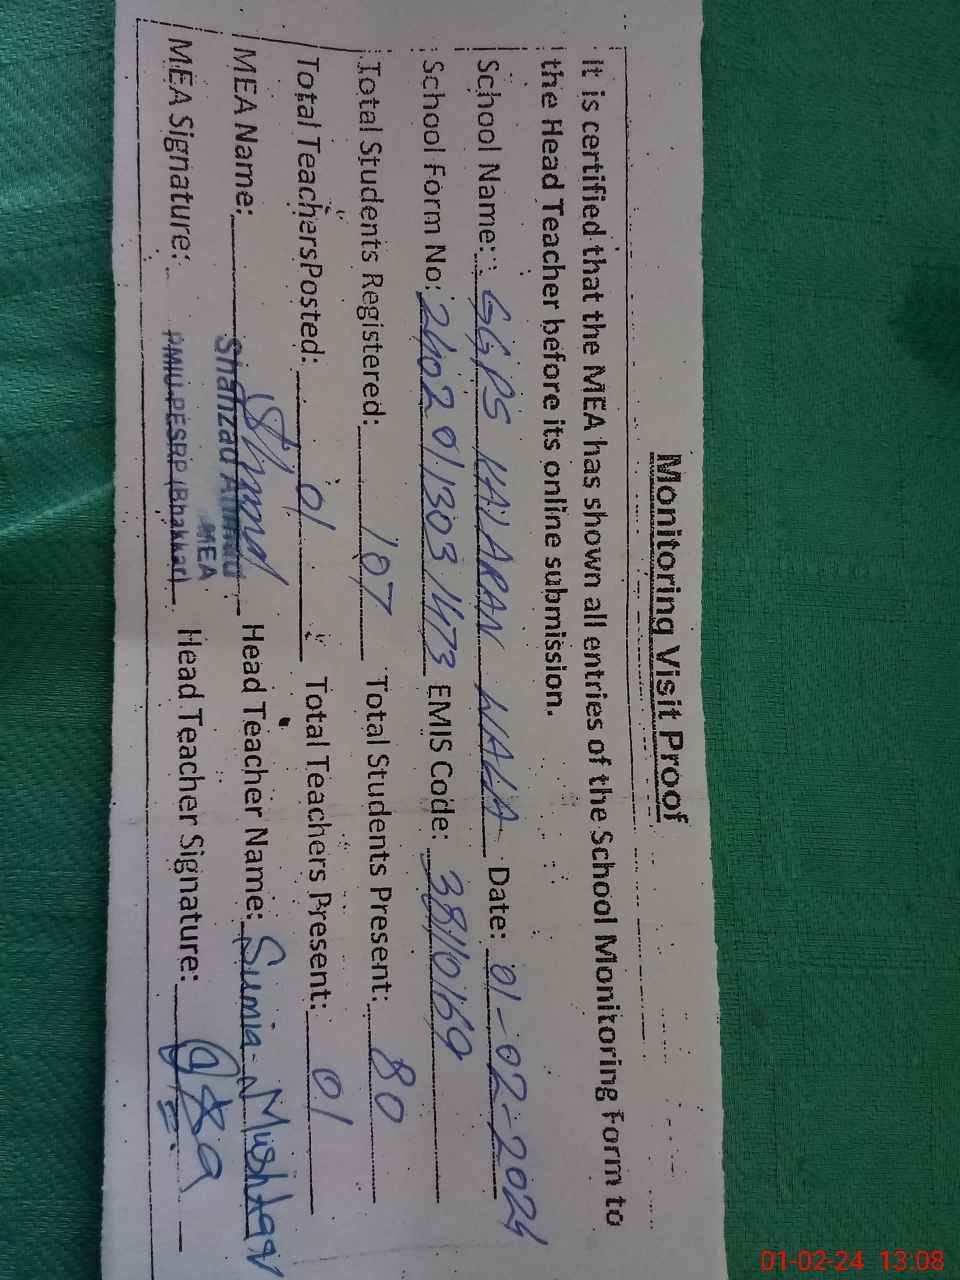 Monitoring Visit Proof
It is certified that the MEA has shown all entries of the School Monitoring Form to
the Head Teacher before its online submission.
School Name: GGPS KALARAN WALA Date: 01-02-2024
School Form No: 2402013031473 EMIS Code: 38110169
Total Students Registered: 107 Total Students Present: 80
Total TeachersPosted: 01 Total Teachers Present: 01
MEA Name: Shahzad Ahmad Head Teacher Name: Sumia Mushtaq
MEA
MEA Signature: PMIU.PESRP (Bhakkar) Head Teacher Signature:
01-02-24 13:08